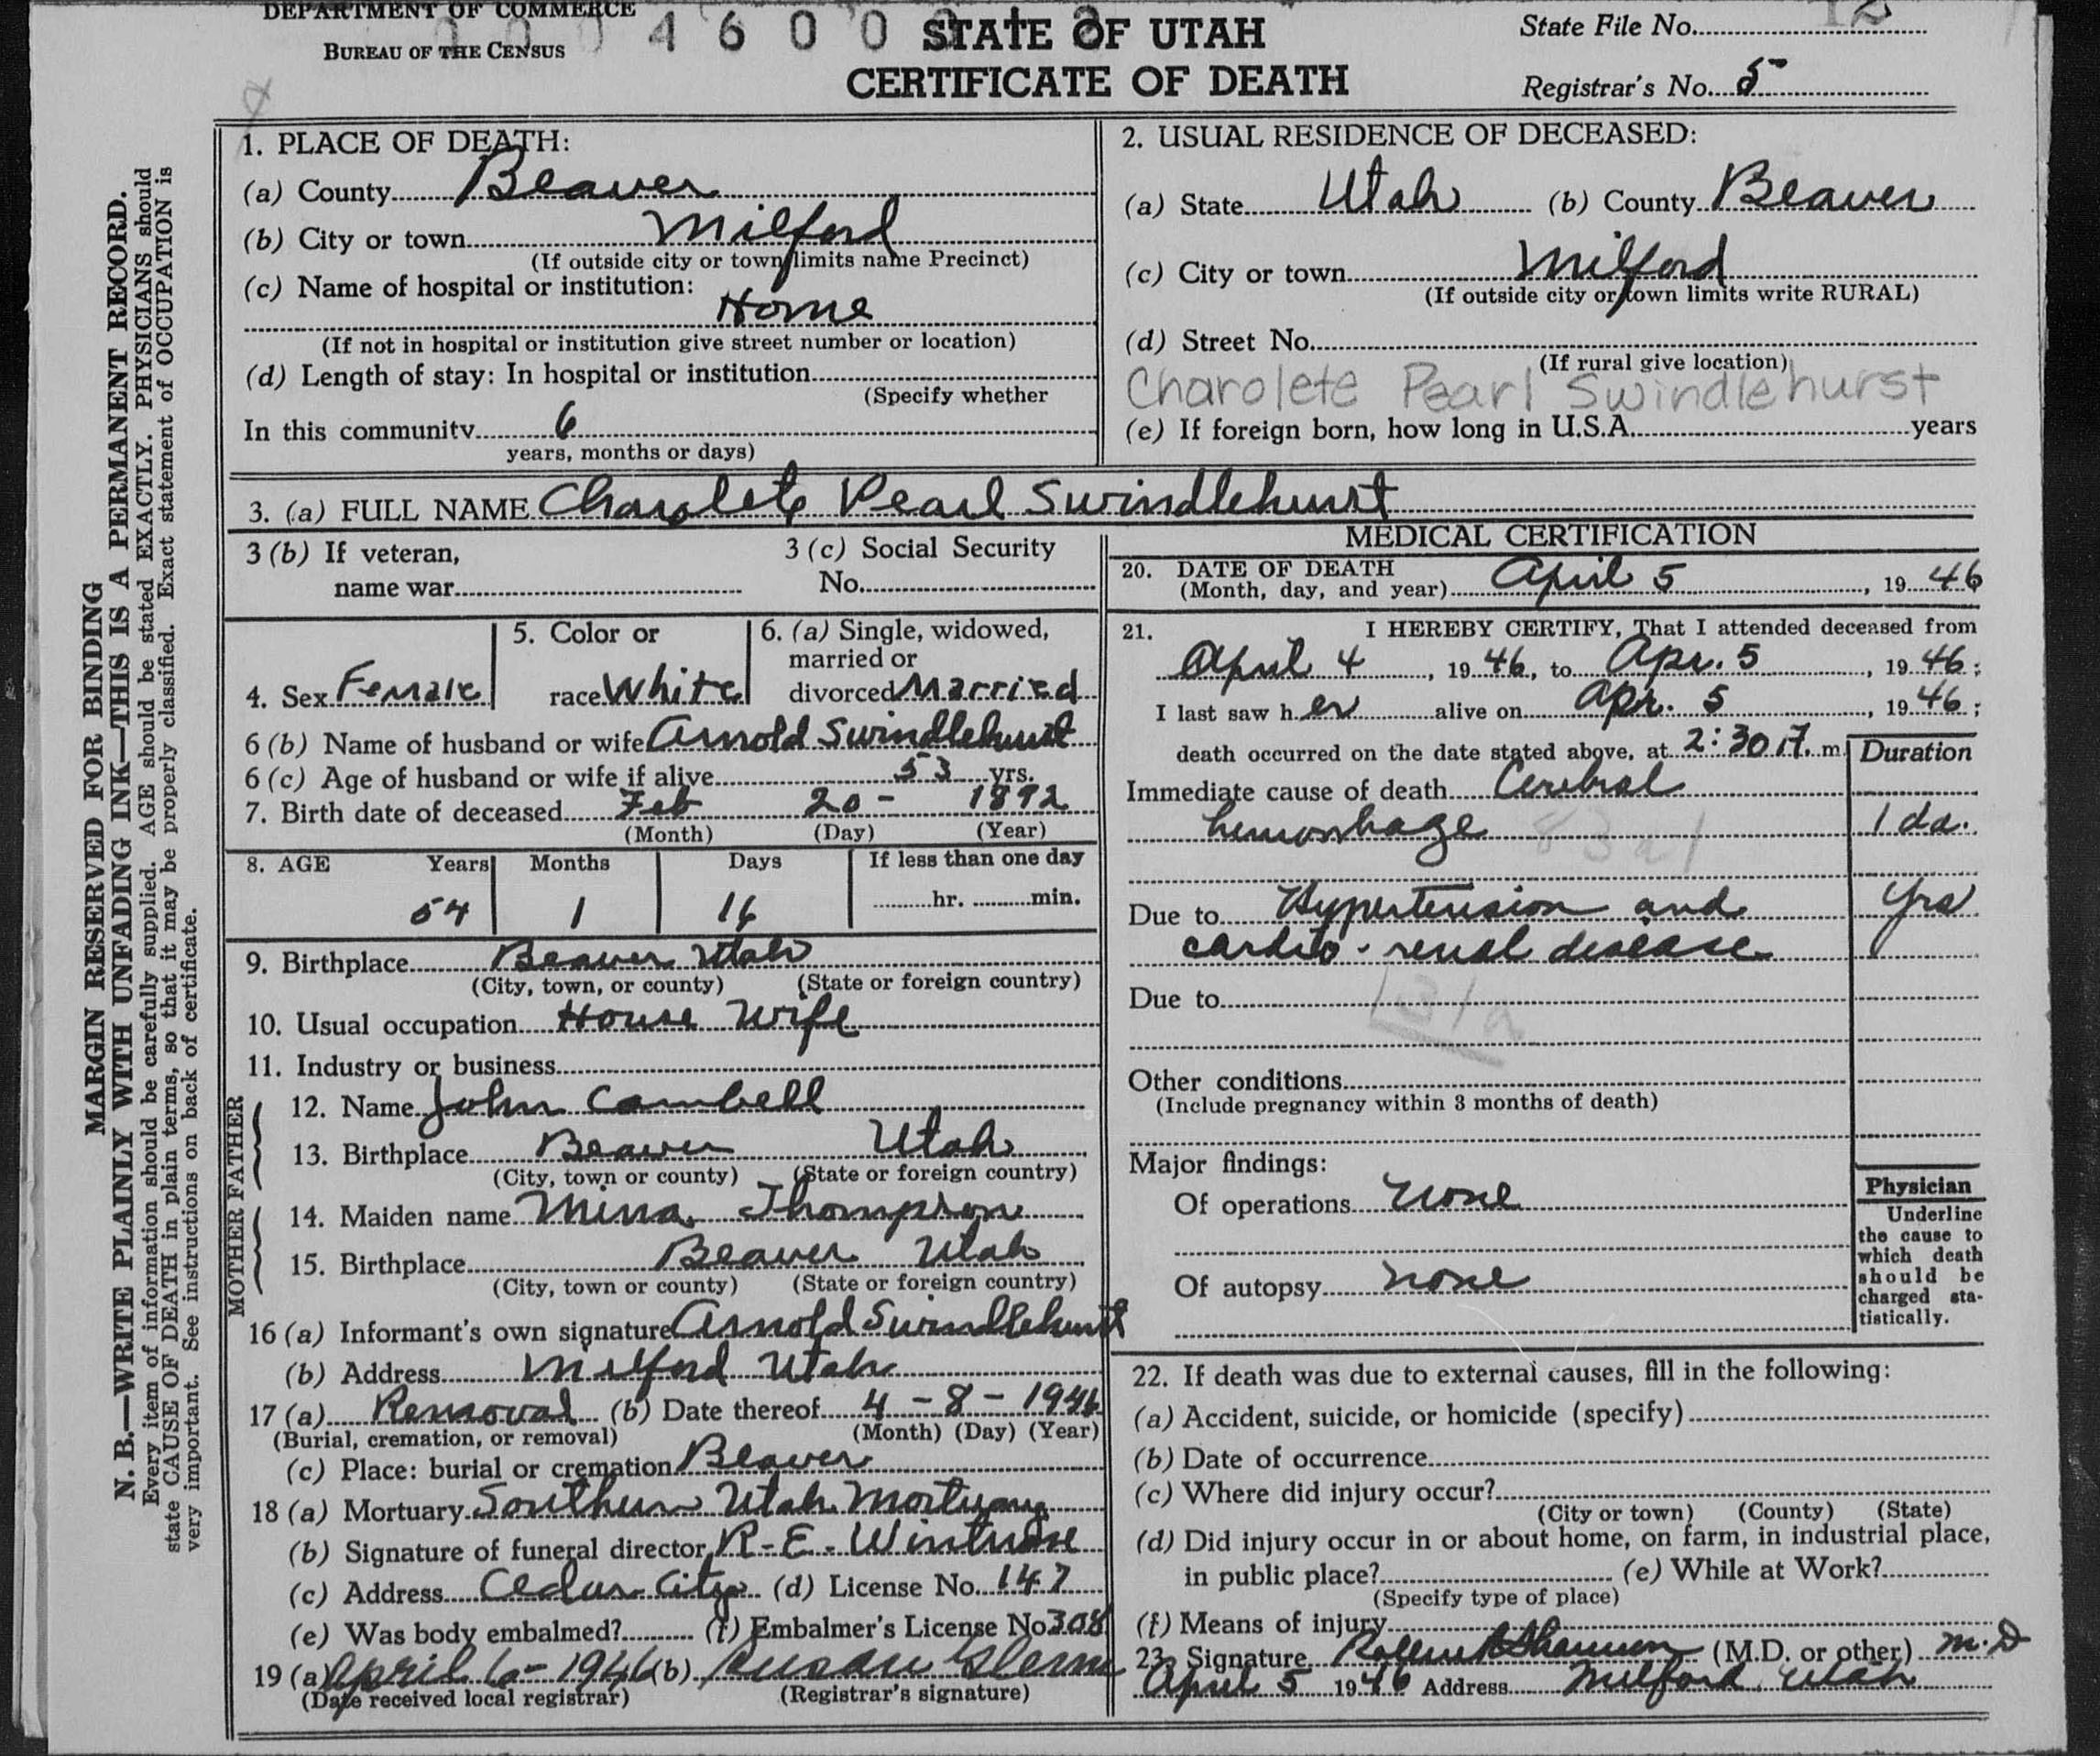 DEPARTMENT OF COMMERCE
BUREAU OF THE CENSUS
4 6 0 0
STATE OF UTAH
CERTIFICATE OF DEATH
State File No. 12
Registrar's No. 5
MARGIN RESERVED FOR BINDING
N. B.—WRITE PLAINLY WITH UNFADING INK—THIS IS A PERMANENT RECORD.
Every item of information should be carefully supplied. AGE should be stated EXACTLY. PHYSICIANS should
state CAUSE OF DEATH in plain terms, so that it may be properly classified. Exact statement of OCCUPATION is
very important. See instructions on back of certificate.
1. PLACE OF DEATH:
(a) County Beaver
(b) City or town Milford
(If outside city or town limits name Precinct)
(c) Name of hospital or institution:
Home
(If not in hospital or institution give street number or location)
(d) Length of stay: In hospital or institution
(Specify whether
In this community 6
years, months or days)
2. USUAL RESIDENCE OF DECEASED:
(a) State Utah (b) County Beaver
(c) City or town Milford
(If outside city or town limits write RURAL)
(d) Street No.
(If rural give location)
Charolete Pearl Swindlehurst
(e) If foreign born, how long in U.S.A. years
3. (a) FULL NAME Charolete Pearl Swindlehurst
3 (b) If veteran, name war
3 (c) Social Security No.
4. Sex Female
5. Color or race White
6. (a) Single, widowed, married or divorced Married
6 (b) Name of husband or wife Arnold Swindlehurst
6 (c) Age of husband or wife if alive 53 yrs.
7. Birth date of deceased Feb 20 - 1892
(Month) (Day) (Year)
8. AGE Years Months Days If less than one day
54 1 16 hr. min.
9. Birthplace Beaver Utah
(City, town, or county) (State or foreign country)
10. Usual occupation House Wife
11. Industry or business
FATHER
12. Name John Cambell
13. Birthplace Beaver Utah
(City, town or county) (State or foreign country)
MOTHER
14. Maiden name Mina Thompson
15. Birthplace Beaver Utah
(City, town or county) (State or foreign country)
16 (a) Informant's own signature Arnold Swindlehurst
(b) Address Milford Utah
17 (a) Removal (b) Date thereof 4 - 8 - 1946
(Burial, cremation, or removal) (Month) (Day) (Year)
(c) Place: burial or cremation Beaver
18 (a) Mortuary Southern Utah Mortuary
(b) Signature of funeral director R. E. Wintrose
(c) Address Cedar City (d) License No. 147
(e) Was body embalmed? (f) Embalmer's License No 308
19 (a) April 6 - 1946 (b)
(Date received local registrar) (Registrar's signature)
MEDICAL CERTIFICATION
20. DATE OF DEATH
(Month, day, and year) April 5, 19 46
21. I HEREBY CERTIFY, That I attended deceased from
April 4, 19 46, to Apr. 5, 19 46;
I last saw h er alive on Apr. 5, 19 46;
death occurred on the date stated above, at 2:30 P. m. Duration
Immediate cause of death Cerebral
hemorrhage 1 da.
83a1
Due to Hypertension and yrs
cardio-renal disease
Due to
131a
Other conditions
(Include pregnancy within 3 months of death)
Major findings:
Of operations none
Of autopsy none
Physician
Underline
the cause to
which death
should be
charged sta-
tistically.
22. If death was due to external causes, fill in the following:
(a) Accident, suicide, or homicide (specify)
(b) Date of occurrence
(c) Where did injury occur?
(City or town) (County) (State)
(d) Did injury occur in or about home, on farm, in industrial place,
in public place? (e) While at Work?
(Specify type of place)
(f) Means of injury
23. Signature (M.D. or other) M.D
April 5 19 46 Address Milford, Utah